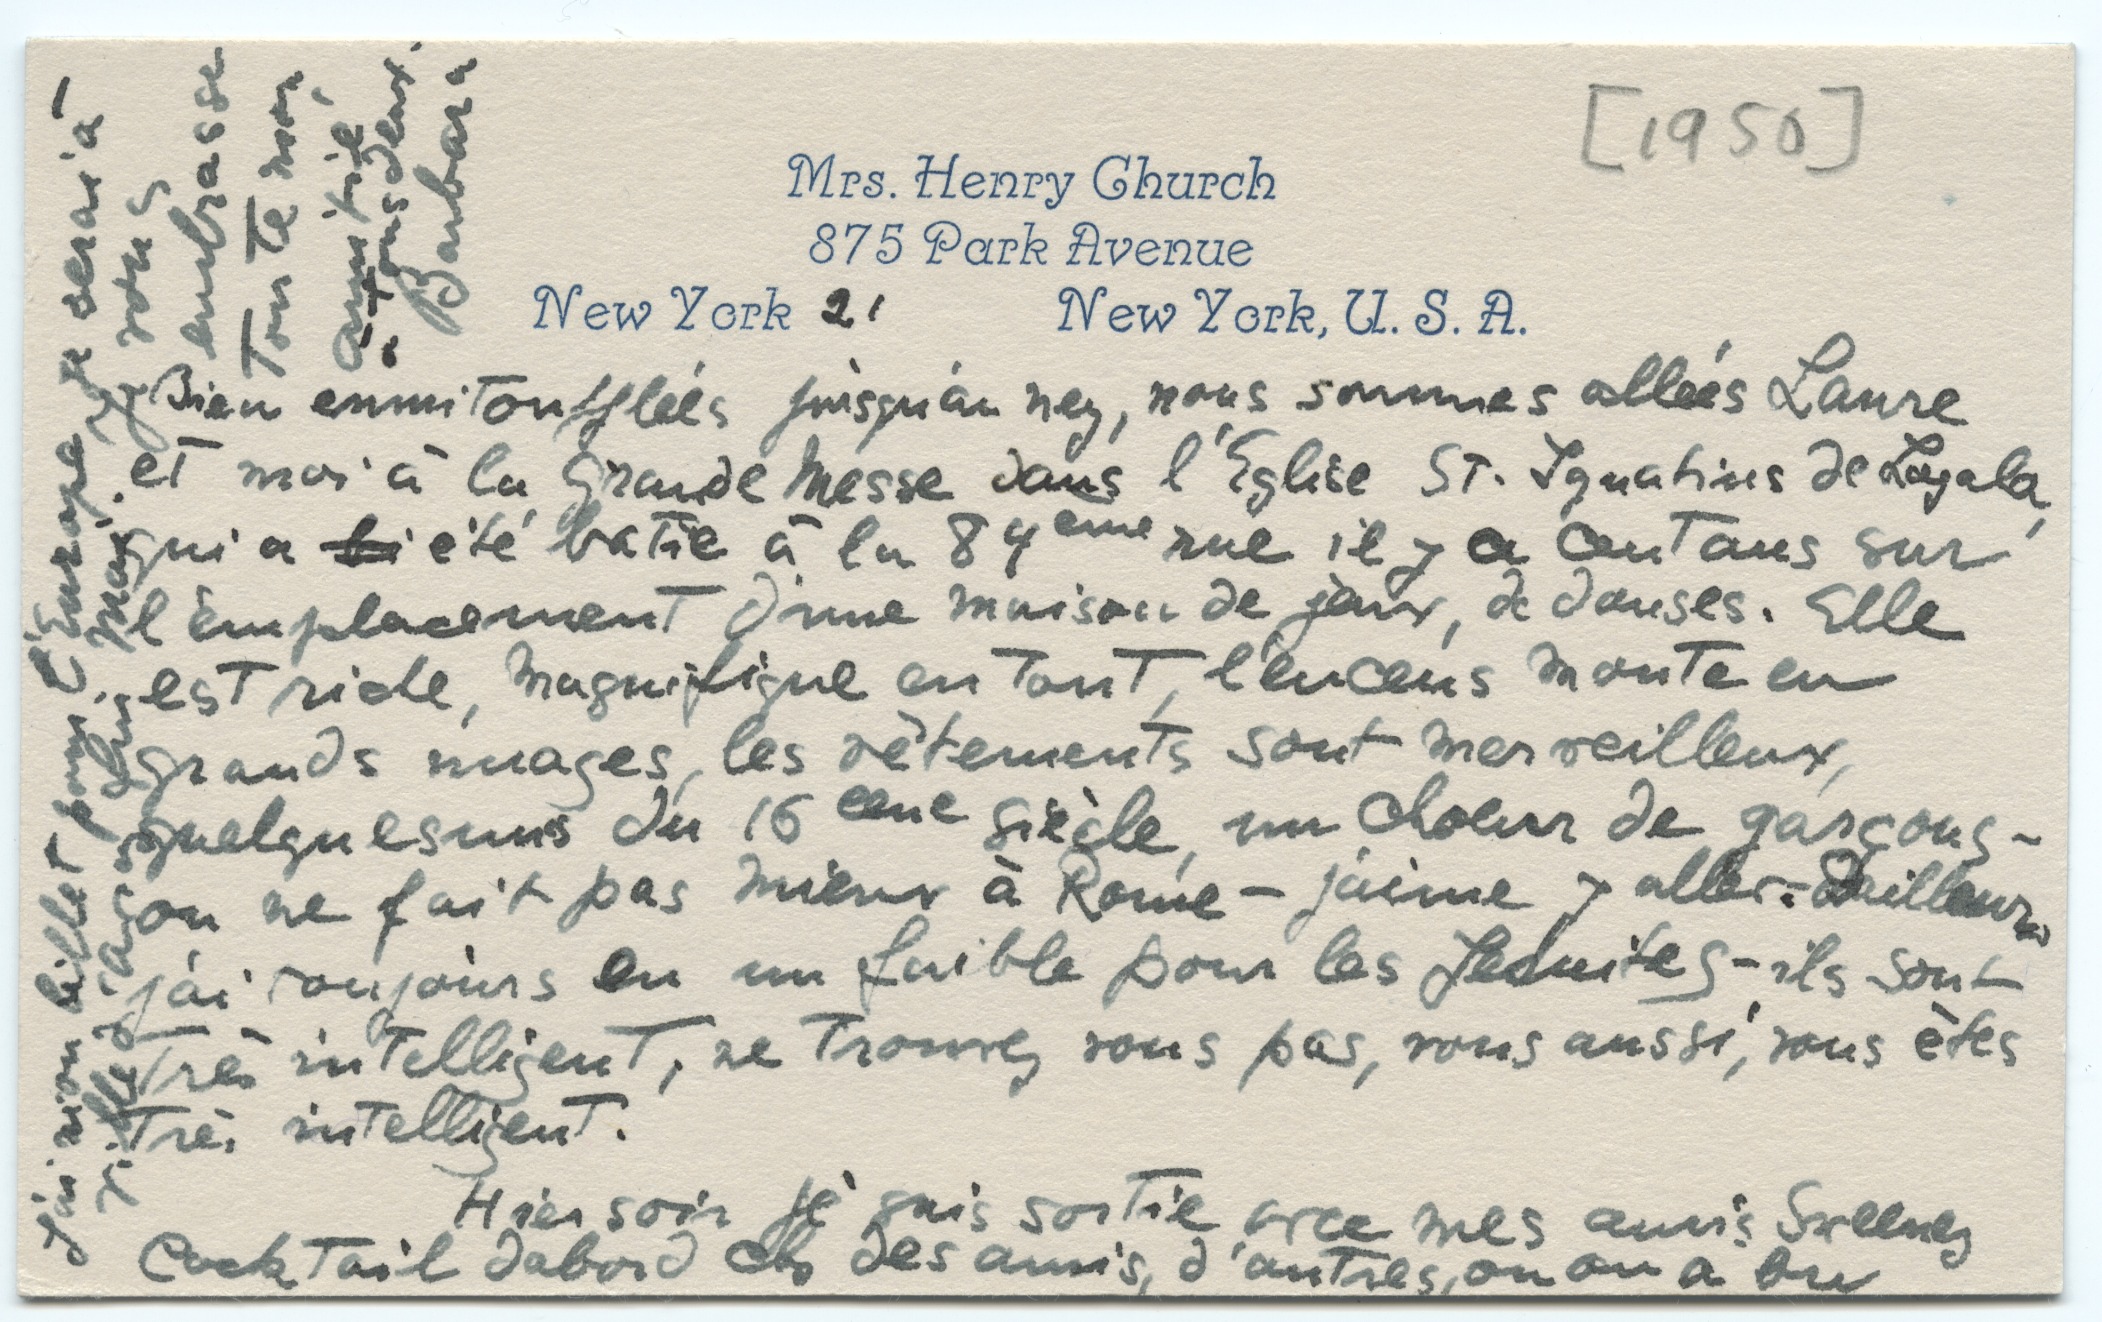 [1950]
Mrs. Henry Church
875 Park Avenue
New York 21 New York, U. S. A.
Bien emmitoufflées jusqu'au nez, nous sommes allées Laure
et moi à la Grande Messe dans l'Eglise St. Ignatius de Loyala,
qui a été batie à la 84eme rue il y a cent ans sur
l'emplacement d'une maison de jeux, de danses. Elle
est riche, magnifique en tout, l'encens monte en
grands nuages, les vêtements sont merveilleux,
quelquesuns du 16eme siècle, un choeur de garçons -
on ne fait pas mieux à Rome - j'aime y aller - Dailleurs
j'ai toujours eu un faible pour les Jesuites - ils sont
très intelligent, ne trouvez vous pas, vous aussi, vous êtes
très intelligent.
Hier soir je suis sortie avec mes amis Sweeney
Cocktail dabord chez des amis, d'autres, ou on a bu
J'ai mon billet pour l'Europe, je serai à
Ville d'Avray
vous
embrasse
Toute mon
amitié,
à tous deux.
Barbara